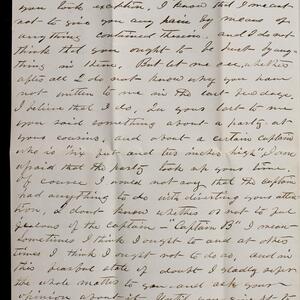 you took exception. I know that I meant
not to give you any pain by means of
anything contained therein. and I do not
think that you ought to be hurt by any-
thing in them. But let me see, whether
after all I do not know why you have
not written to me in the last
I believe that I do. In your last to me
you said something about a party at
your cousins, and about a certain captain
who is "six feet and two inches high" I am
afraid that the party took up your time.
Of course I would not say that the Captain
had anything to do with diverting your atten-
tion, I dont know whether or not to get
jealous of the Captain - "Captain B" I mean
Sometimes I think I ought to and at other
times I think I ought not to do so, and in
this fearful state of doubt I gladly refer
the whole matter to you, and ask your
opinion about it. Until